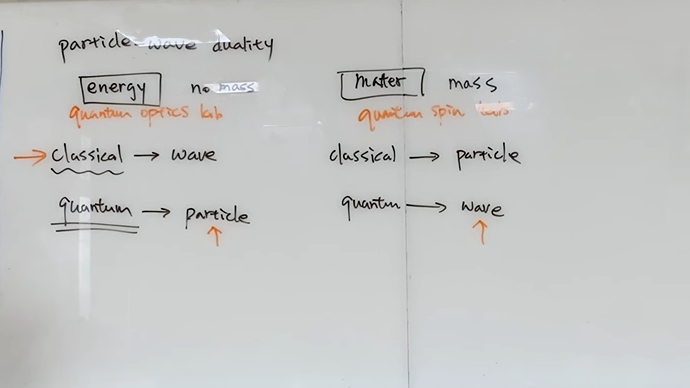 particle-wave duality
energy no mass
quantum optics lab
classical → wave
quantum → particle
matter mass
quantum spin labs
classical → particle
quantum → wave